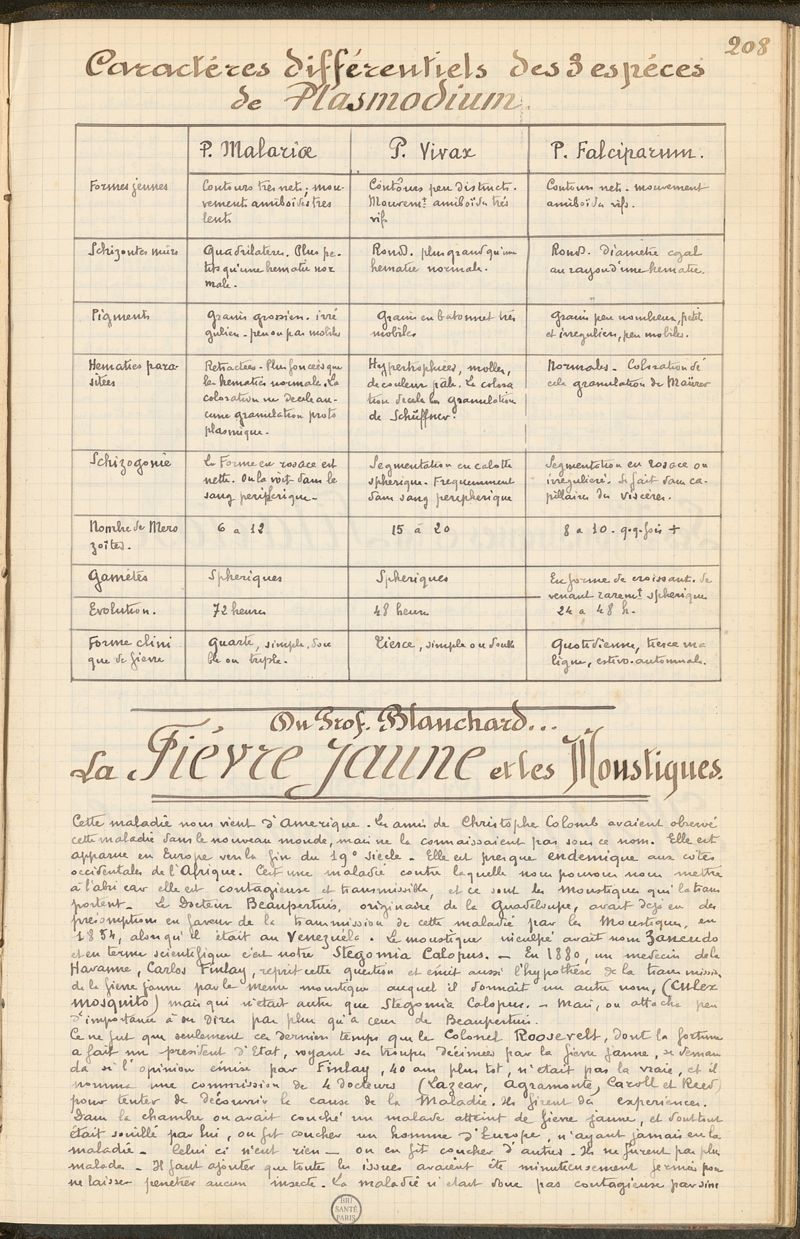 208
Caractéres différentiels des 3 espéces
de Plasmodium.
P. Malariæ
P. Vivax
P. Falciparum.
Formes jeunes
Contours tres nets; mou-
vements amiboïdes tres
lents
Contours peu distincts.
Mouvemt amiboïdes trés
vifs
Contours nets. mouvement
amiboïdes vifs.
Schizontes mûrs
Quadrilateres. Plus pe-
tits qu'une hematie nor
male.
Rond. plus grand qu'une
hematie normale.
Rond. diametre egal
au rayon d'une hematie.
Pigments
Grains grossiers. irré
guliers - peu ou pas mobiles
Grains en batonnet trés
mobiles
Grains peu nombreux, petits
et irreguliers, peu mobiles.
Hematies para-
sitées
Retractées - Plus foncées que
les hematies normales. La
coloration ne decele au-
cune granulation proto
plasmique.
Hypertrophiées, molles,
de couleur pâle. La colora
tion decele les granulations
de Schüffner.
Normales - Coloration dé
cele granulation de Maürer
Schizogonie
La Forme en rosace est
nette. On la voit dans le
sang periferique -
Segmentation en calotte
spherique. Frequemment
dans sang peripherique
Segmentation en rosace ou
irreguliere. Se fait dans ca-
pillaires des viscéres.
Nombre de Mero
zoïtes.
6 a 12
15 à 20
8 a 10 - q.q. fois +
Gamétes
Spheriques
Spheriques
En forme de croissant. de
venant raremt spherique
Evolution.
72 heures
48 heures
24 a 48 h.
Forme clini
que de fievre
Quarte, simple, dou
ble ou triple.
Tierce, simple ou double
Quotidienne, tierce ma-
ligne, estivo-automnale.
Du Prof. Blanchard...
La Fiévre jaune et les Moustiques.
Cette maladie nous vient d'Amerique. Les amis de Christophe Colomb avaient observé
cette maladie dans le nouveau monde, mais ne la connaissaient pas sous ce nom. Elle est
apparue en Europe vers la fin du 19e siècle - Elle est presque endemique aux côtes
occidentales de l'Afrique. C'est une maladie contre laquelle nous pouvons nous mettre
à l'abri car elle est contagieuse et transmissible, et ce sont les moustiques qui la trans
portent - Le Docteur Beaupertuis, originaire de la Guadeloupe, avait dejà eu des
presomptions en faveur de la transmission de cette maladie par les Moustiques, en
1854, alors qu'il était au Venezuéla. Le moustique inculpé avait nom Zancudo
et en terme scientifique c'est notre Stegomia Calopus. - En 1880, un medecin de la
Havanne, Carlos Finlay, reprit cette question et émit aussi l'hypothèse de la transmission
de la fievre jaune par le meme moustique auquel il donnait un autre nom, (Culex
mosquito) mais qui n'etait autre que Stegomia Calopus. - Mais, on attacha peu
d'importance à ses dires pas plus qu'a ceux de Beaupertuis.
Ce ne fut que seulement ces derniers temps que le Colonel Roosevelt, dont la fortune
a fait un president d'Etat, voyant ses troupes décimées par la fievre jaune, se deman
da si l'opinion émise par Finlay, 40 ans plus tôt, n'etait pas la vraie, et il
nomma une commission de 4 docteurs (Lazear, Agramonte, Caroll et Reed)
pour tenter de découvrir la cause de la Maladie. Ils firent des experiences.
Dans la chambre ou avait couché un malade atteint de fievre jaune, et dont tout
était souillé par lui, on fit coucher un homme d'Europe, n'ayant jamais eu la
maladie - Celui ci n'eut rien - on en fit coucher d'autres. Ils ne furent pas plus
malades - Il faut ajouter que toutes les issues avaient été minutieusement fermées pour
ne laisser penetrer aucun insecte. La maladie n'etait donc pas contagieuse par sine
BIU
SANTÉ
PARIS